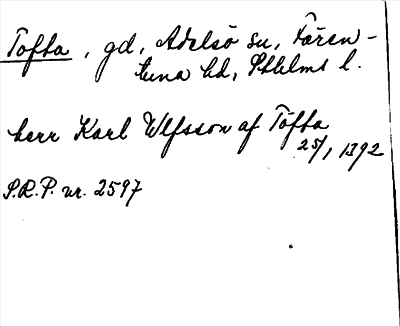 Tofta, gd, Adelsö sn, Fären-
tuna hd, Sthlms l.
herr Karl Ulfsson af Tofta
25/1 1392
S.R.P. nr. 2597